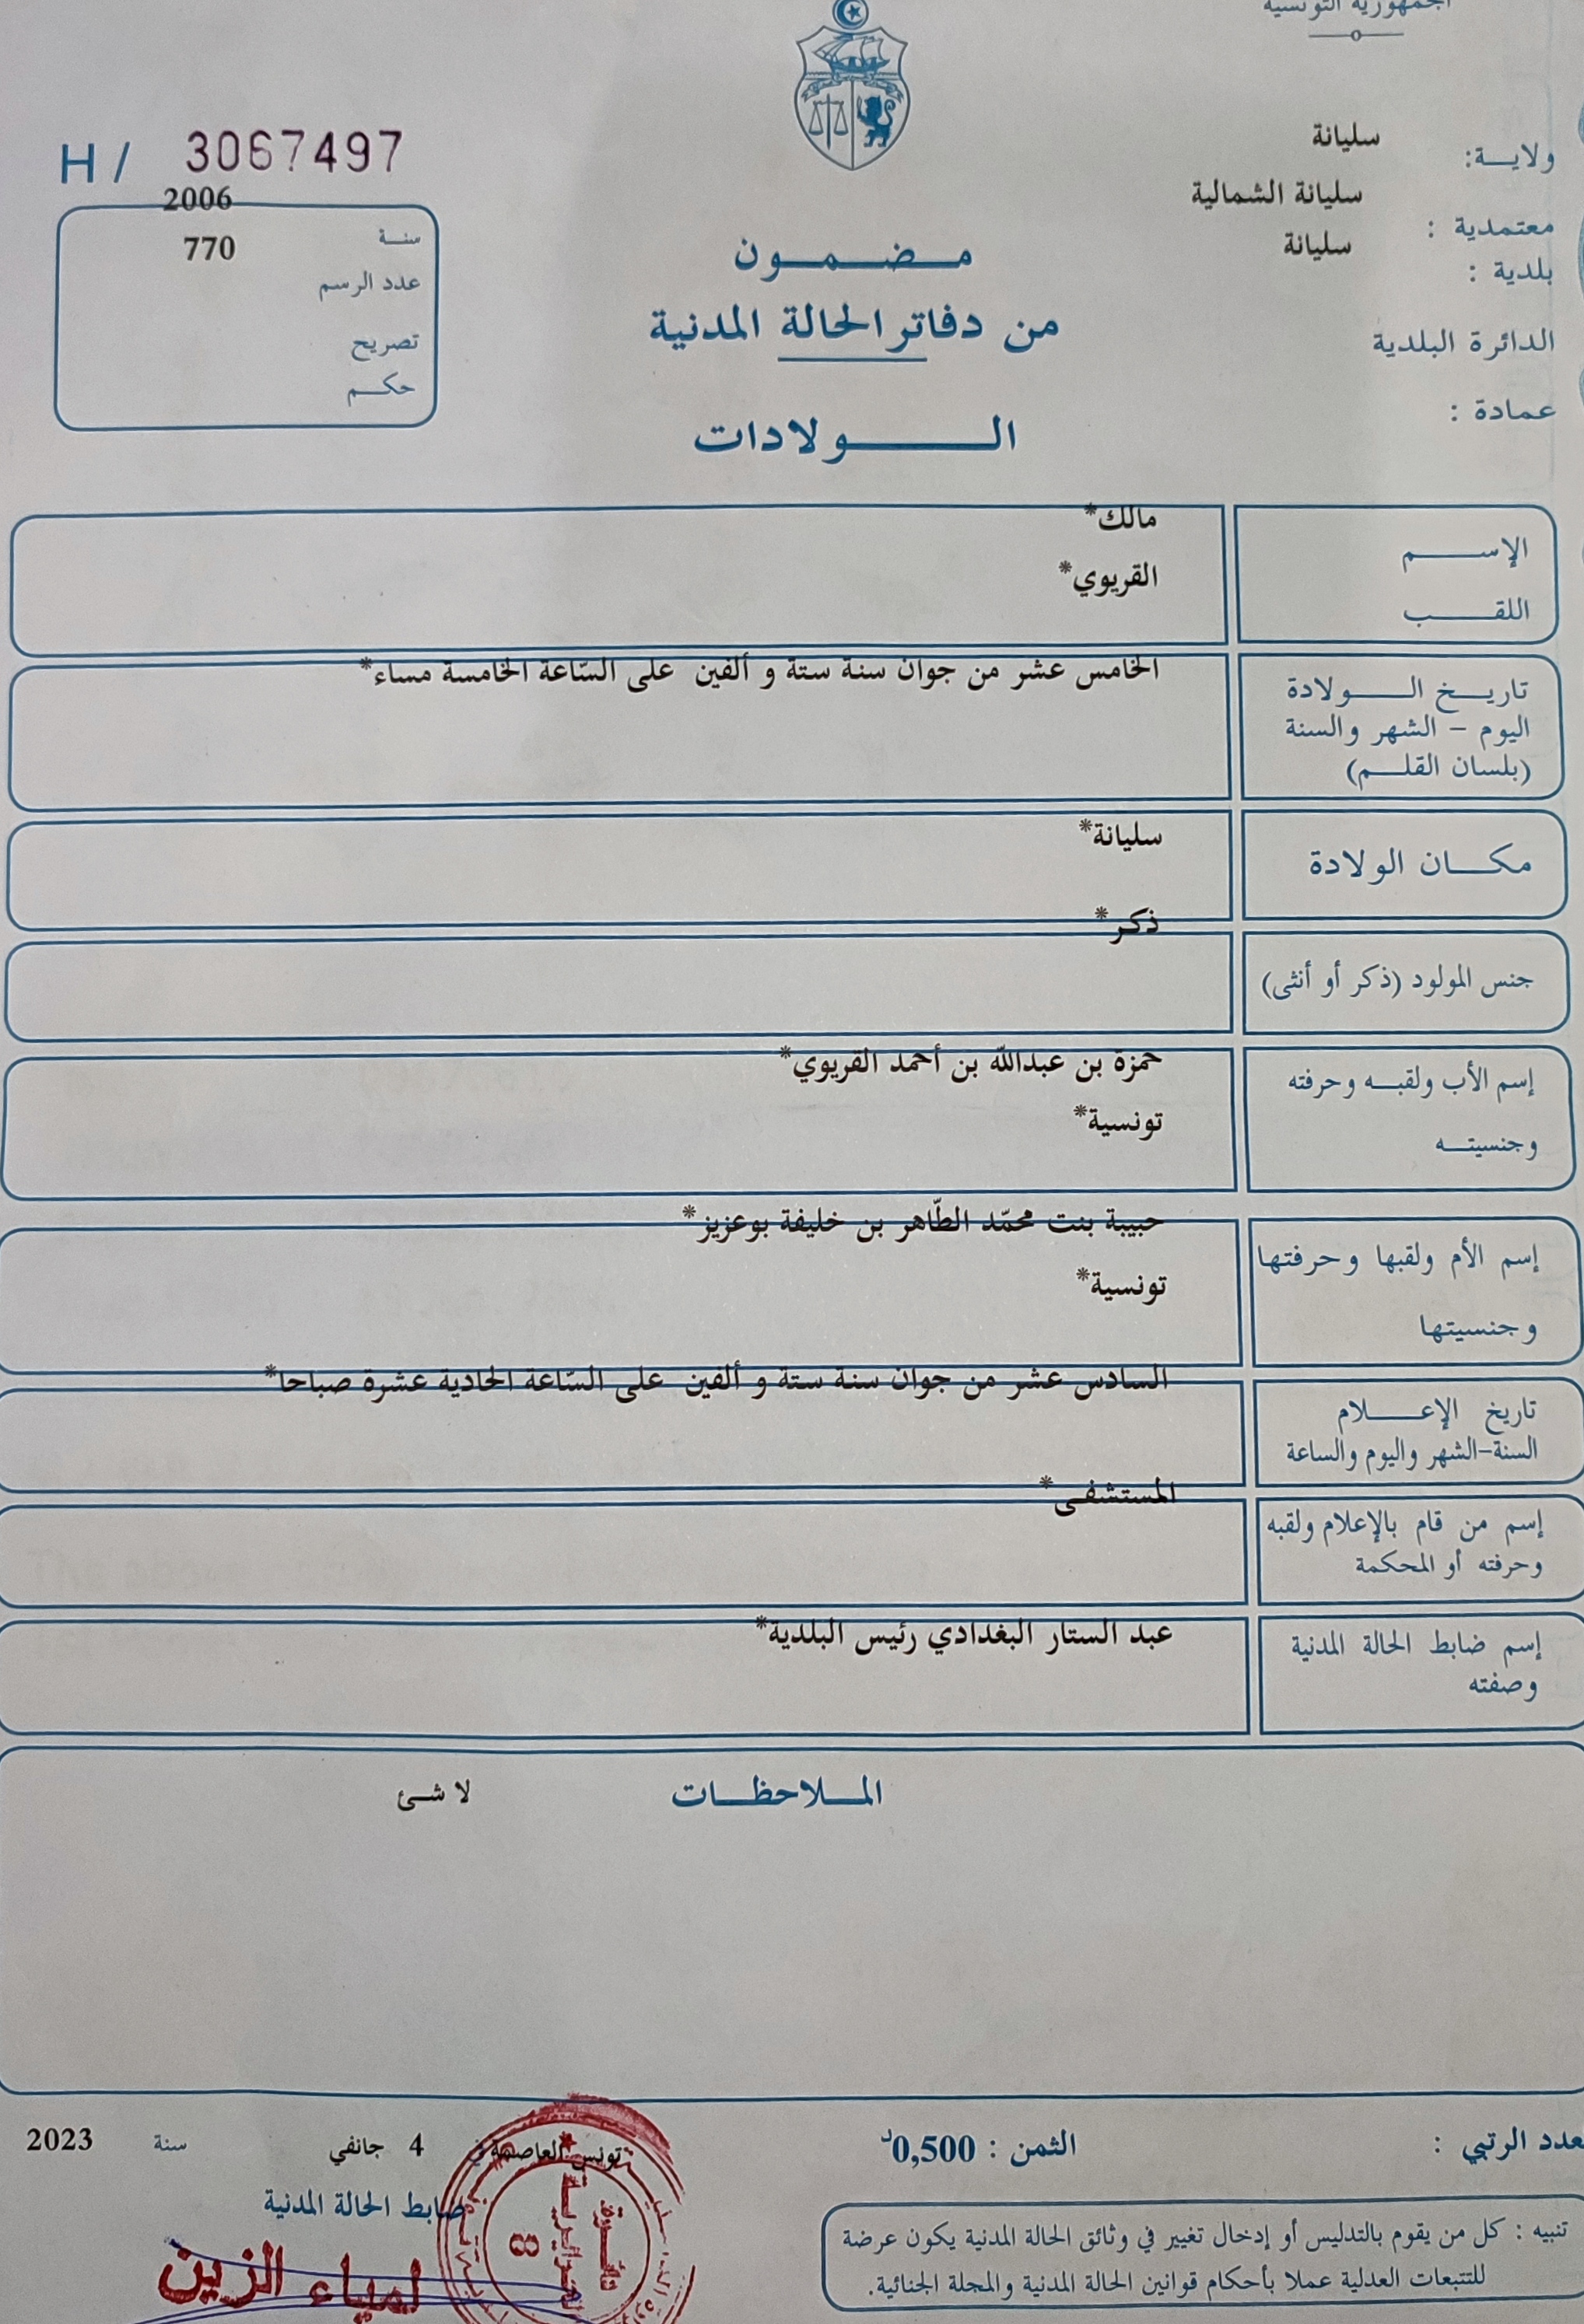 الجمهورية التونسية
H / 3067497
ولايـــة: سليانة
معتمدية : سليانة الشمالية
بلدية : سليانة
الدائرة البلدية
عمادة :
2006
سنة
770
عدد الرسم
تصريح
حكم
مضمون
من دفاتر الحالة المدنية
الولادات
الإسم مالك*
اللقب القريوي*
تاريخ الولادة الخامس عشر من جوان سنة ستة و ألفين على السّاعة الخامسة مساء*
اليوم – الشهر والسنة
(بلسان القلم)
مكان الولادة سليانة*
ذكر*
جنس المولود (ذكر أو أنثى)
إسم الأب ولقبه وحرفته حمزة بن عبدالله بن أحمد القريوي*
وجنسيته تونسية*
إسم الأم ولقبها وحرفتها حبيبة بنت محمّد الطّاهر بن خليفة بوعزيز*
وجنسيتها تونسية*
تاريخ الإعلام السادس عشر من جوان سنة ستة و ألفين على السّاعة الحادية عشرة صباحا*
السنة-الشهر واليوم والساعة
المستشفى*
إسم من قام بالإعلام ولقبه
وحرفته أو المحكمة
إسم ضابط الحالة المدنية عبد الستار البغدادي رئيس البلدية*
وصفته
الملاحظات لا شئ
عدد الرتبي : الثمن : 0,500د
تونس العاصمة في 4 جانفي سنة 2023
ضابط الحالة المدنية
لمياء الزين
8
تنبيه : كل من يقوم بالتدليس أو إدخال تغيير في وثائق الحالة المدنية يكون عرضة
للتتبعات العدلية عملا بأحكام قوانين الحالة المدنية والمجلة الجنائية.